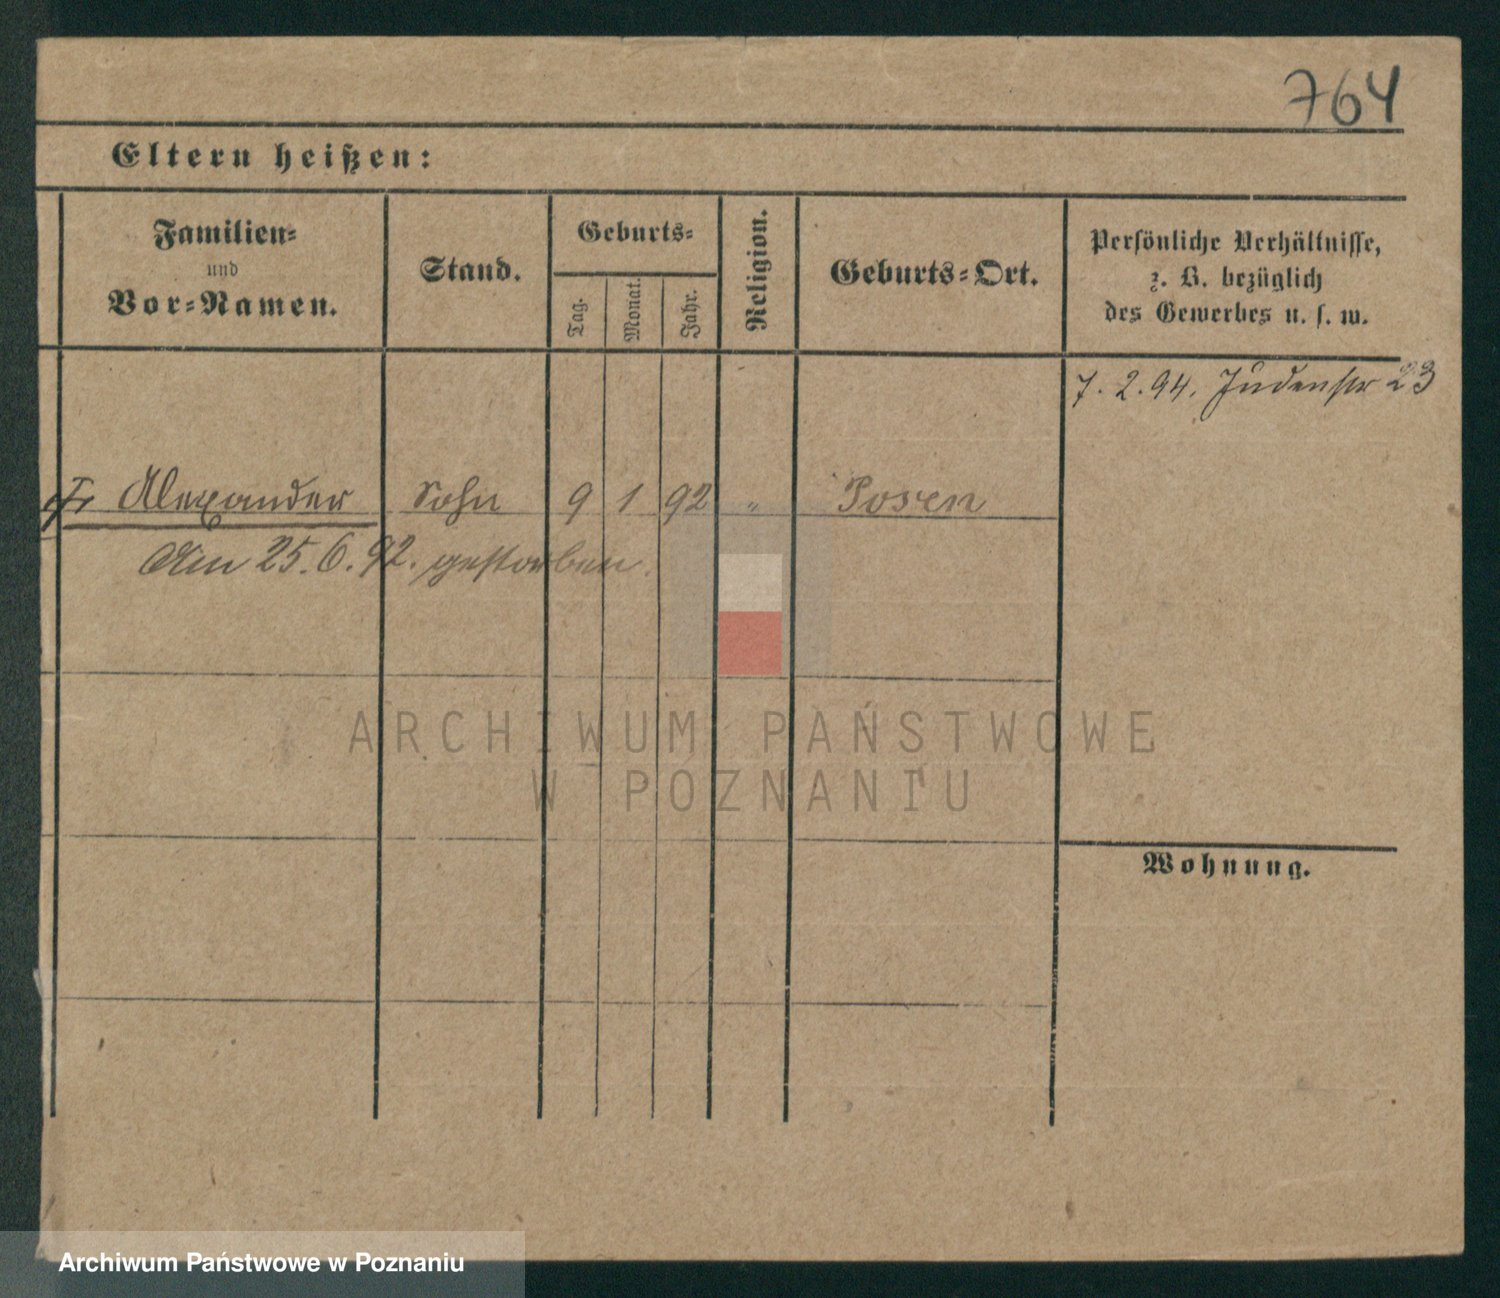 764
Eltern heißen:
Familien-
und
Vor-Namen.
Stand.
Geburts-
Tag.
Monat.
Jahr.
Religion.
Geburts-Ort.
Persönliche Verhältnisse,
z. B. bezüglich
des Gewerbes u. s. w.
7. 2. 94. Judenstr 23
Alexander Sohn 9 1 92 " Posen
Am 25. 6. 92. gestorben.
ARCHIWUM PAŃSTWOWE
W POZNANIU
Wohnung.
Archiwum Państwowe w Poznaniu